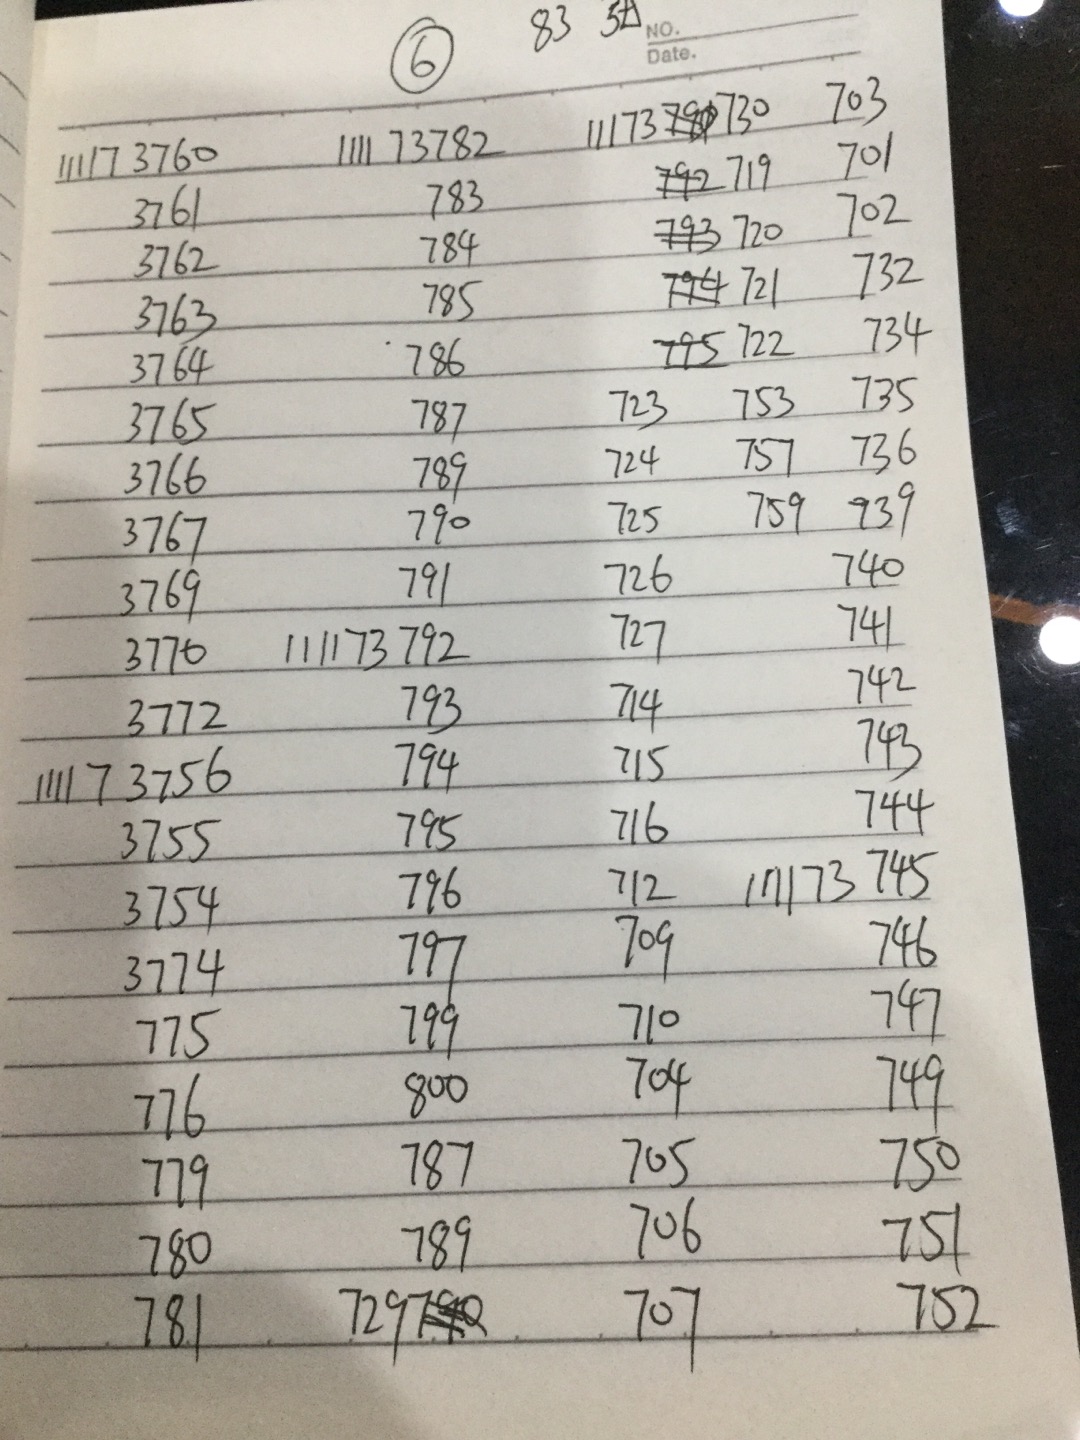 ⑥ 83 NO.
Date.
111173760 111173782 11173 730 703
3761 783 792 719 701
3762 784 793 720 702
3763 785 794 721 732
3764 786 795 722 734
3765 787 723 753 735
3766 789 724 757 736
3767 790 725 759 939
3769 791 726 740
3770 111173792 727 741
3772 793 714 742
111173756 794 715 743
3755 795 716 744
3754 796 712 111173745
3774 797 709 746
775 799 710 747
776 800 704 749
779 787 705 750
780 789 706 751
781 729 707 752